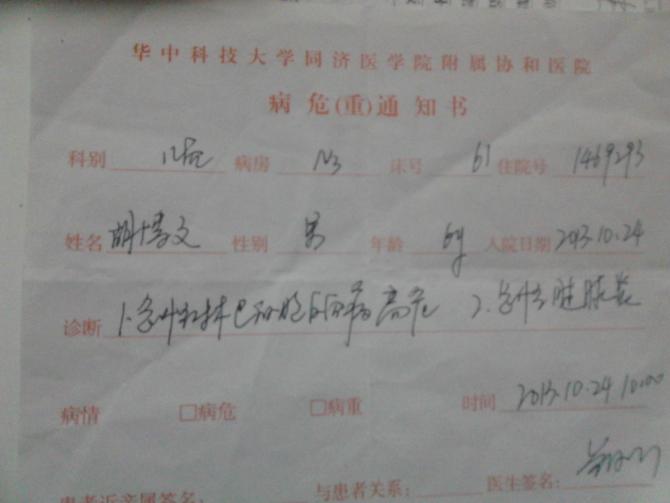 华中科技大学同济医学院附属协和医院
病危(重)通知书
科别 儿血 病房 N3 床号 61 住院号 1469293
姓名 胡博文 性别 男 年龄 6y 入院日期 2013.10.24
诊断 1.急性淋巴细胞白血病 高危 2.
病情 □病危 □病重 时间 2013.10.24 10:00
患者近亲属签名: 与患者关系: 医生签名: